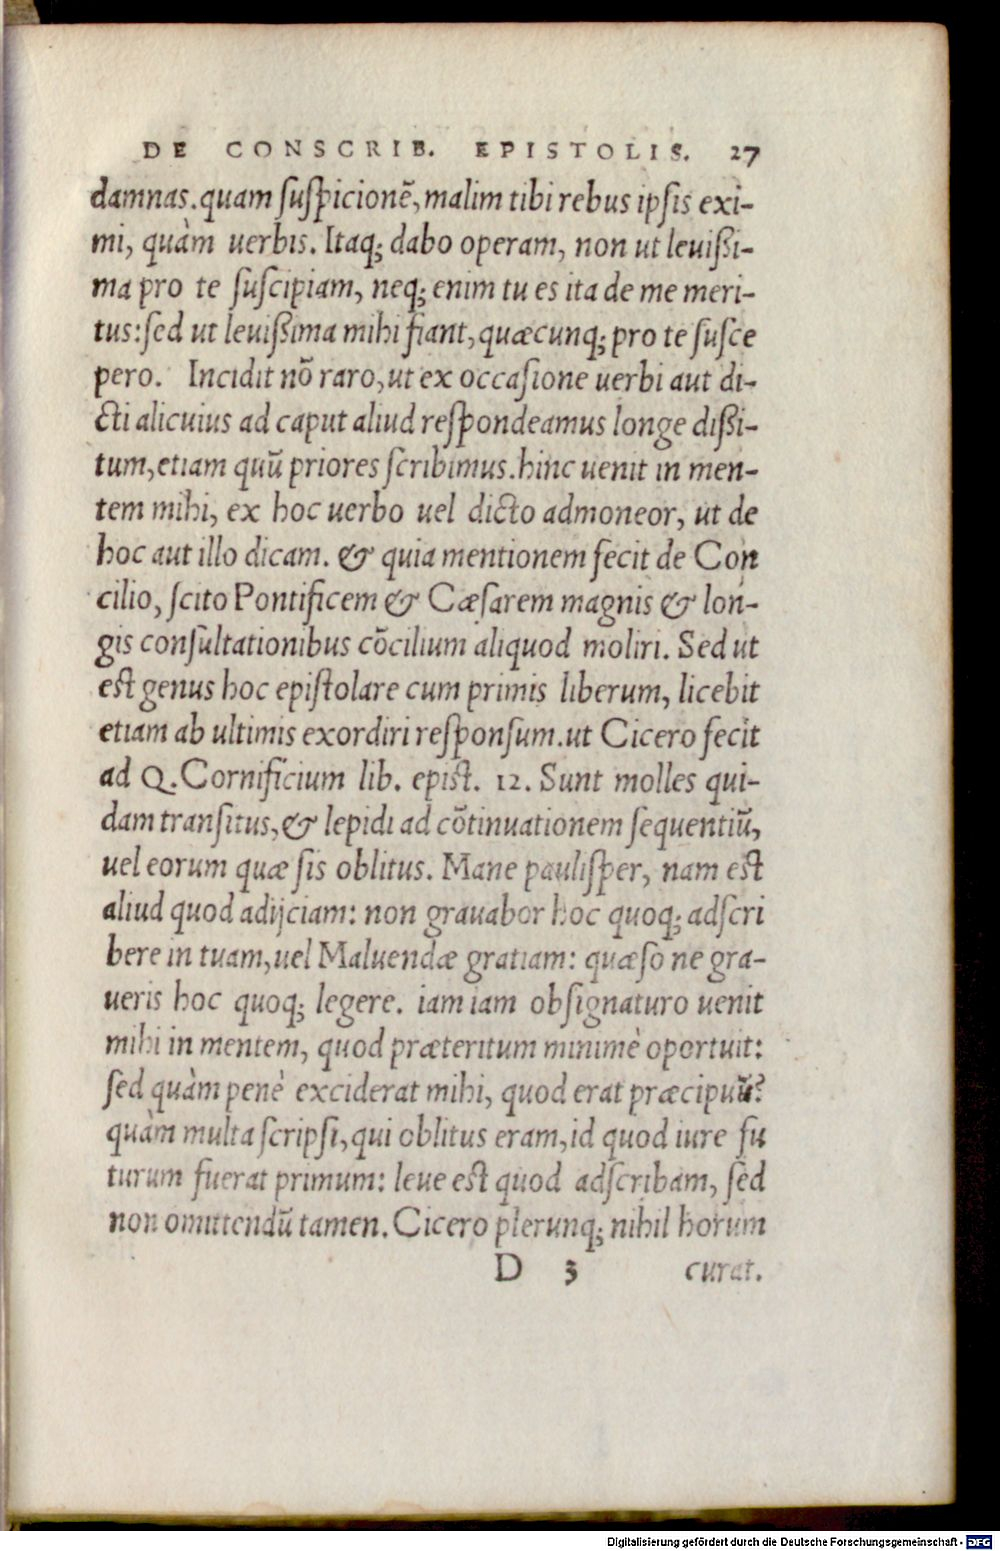 DE CONSCRIB. EPISTOLIS. 27
damnas.quam ſuſpicionē, malim tibi rebus ipſis exi-
mi, quàm uerbis. Itaq; dabo operam, non ut leuißi-
ma pro te ſuſcipiam, neq; enim tu es ita de me meri-
tus:ſed ut leuißima mihi fiant, quæcunq; pro te ſuſce
pero. Incidit nō raro, ut ex occaſione uerbi aut di-
cti alicuius ad caput aliud reſpondeamus longe dißi-
tum, etiam quū priores ſcribimus.hinc uenit in men-
tem mihi, ex hoc uerbo uel dicto admoneor, ut de
hoc aut illo dicam. & quia mentionem fecit de Con
cilio, ſcito Pontificem & Cæſarem magnis & lon-
gis conſultationibus cōcilium aliquod moliri. Sed ut
eſt genus hoc epiſtolare cum primis liberum, licebit
etiam ab ultimis exordiri reſponſum.ut Cicero fecit
ad Q. Cornificium lib. epiſt. 12. Sunt molles qui-
dam tranſitus, & lepidi ad cōtinuationem ſequentiū,
uel eorum quæ ſis oblitus. Mane pauliſper, nam eſt
aliud quod adijciam: non grauabor hoc quoq; adſcri
bere in tuam, uel Maluendæ gratiam: quæſo ne gra-
ueris hoc quoq; legere. iam iam obſignaturo uenit
mihi in mentem, quod præteritum minimè oportuit:
ſed quàm penè exciderat mihi, quod erat præcipuū?
quàm multa ſcripſi, qui oblitus eram, id quod iure fu
turum fuerat primum: leue eſt quod adſcribam, ſed
non omittendū tamen. Cicero plerunq; nihil horum
D 3 curat.
Digitalisierung gefördert durch die Deutsche Forschungsgemeinschaft - DFG